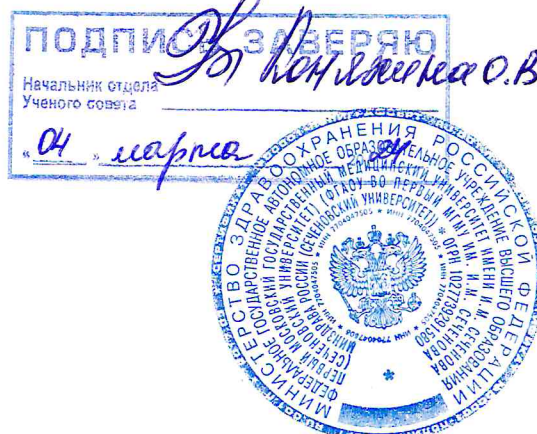 ПОДПИСЬ ЗАВЕРЯЮ
Начальник отдела
Ученого совета
О.В.
"04" марта 24
МИНИСТЕРСТВО ЗДРАВООХРАНЕНИЯ РОССИЙСКОЙ ФЕДЕРАЦИИ
ФЕДЕРАЛЬНОЕ ГОСУДАРСТВЕННОЕ АВТОНОМНОЕ ОБРАЗОВАТЕЛЬНОЕ УЧРЕЖДЕНИЕ ВЫСШЕГО ОБРАЗОВАНИЯ
ПЕРВЫЙ МОСКОВСКИЙ ГОСУДАРСТВЕННЫЙ МЕДИЦИНСКИЙ УНИВЕРСИТЕТ ИМЕНИ И.М. СЕЧЕНОВА
МИНЗДРАВА РОССИИ (СЕЧЕНОВСКИЙ УНИВЕРСИТЕТ)
(ФГАОУ ВО ПЕРВЫЙ МГМУ ИМ. И.М. СЕЧЕНОВА
* ОГРН 1027739291580
* ИНН 7704047505 * ИНН 7704047505 *